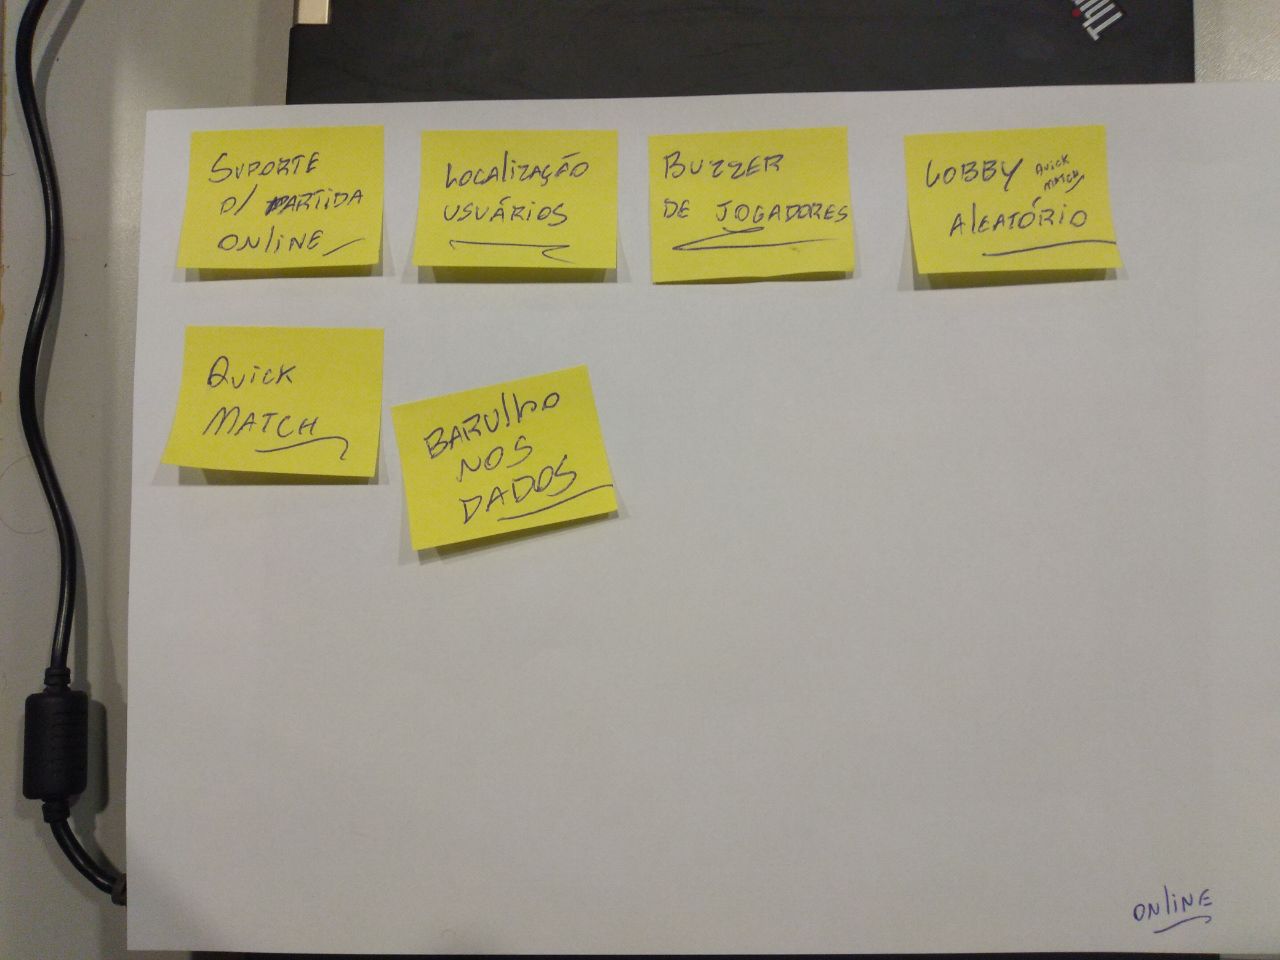 SUPORTE
P/ PARTIDA
ONLINE
LOCALIZAÇÃO
USUÁRIOS
BUZZER
DE JOGADORES
LOBBY QUICK MATCH
ALEATÓRIO
QUICK
MATCH
BARULHO
NOS
DADOS
ONLINE